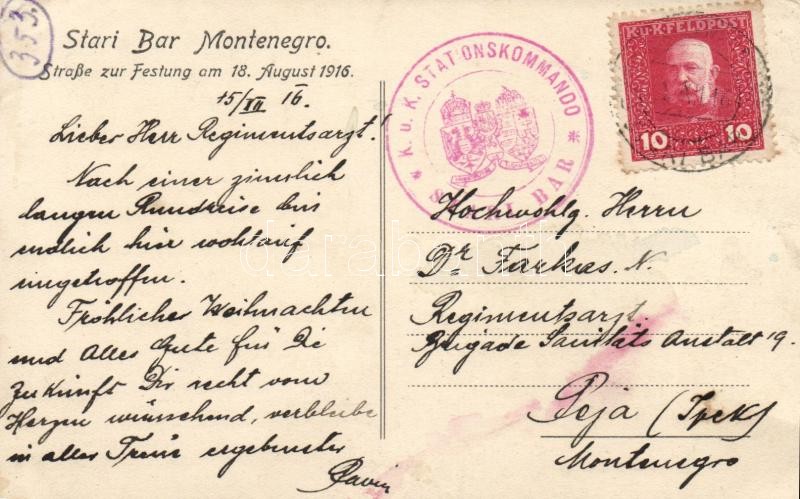 353.
Stari Bar Montenegro.
Straße zur Festung am 18. August 1916.
15/XII 16.
Lieber Herr Regimentsarzt!
Nach einer ziemlich
langen Rundreise bin
endlich hier
eingetroffen.
Fröhliche Weihnachten
und Alles Gute für Die
Zukunft Dir recht vom
Herzen wünschend, verbleibe
in aller Treue ergebenster
K. u. K. STATIONSKOMMANDO
STARI BAR
K.u.K. FELDPOST
10 10
Hochwohlg. Herrn
Dr Farkas N.
Regimentsarzt
Brigade Sanitäts Anstalt 19.
Peja (Ipek)
Montenegro
darabanth